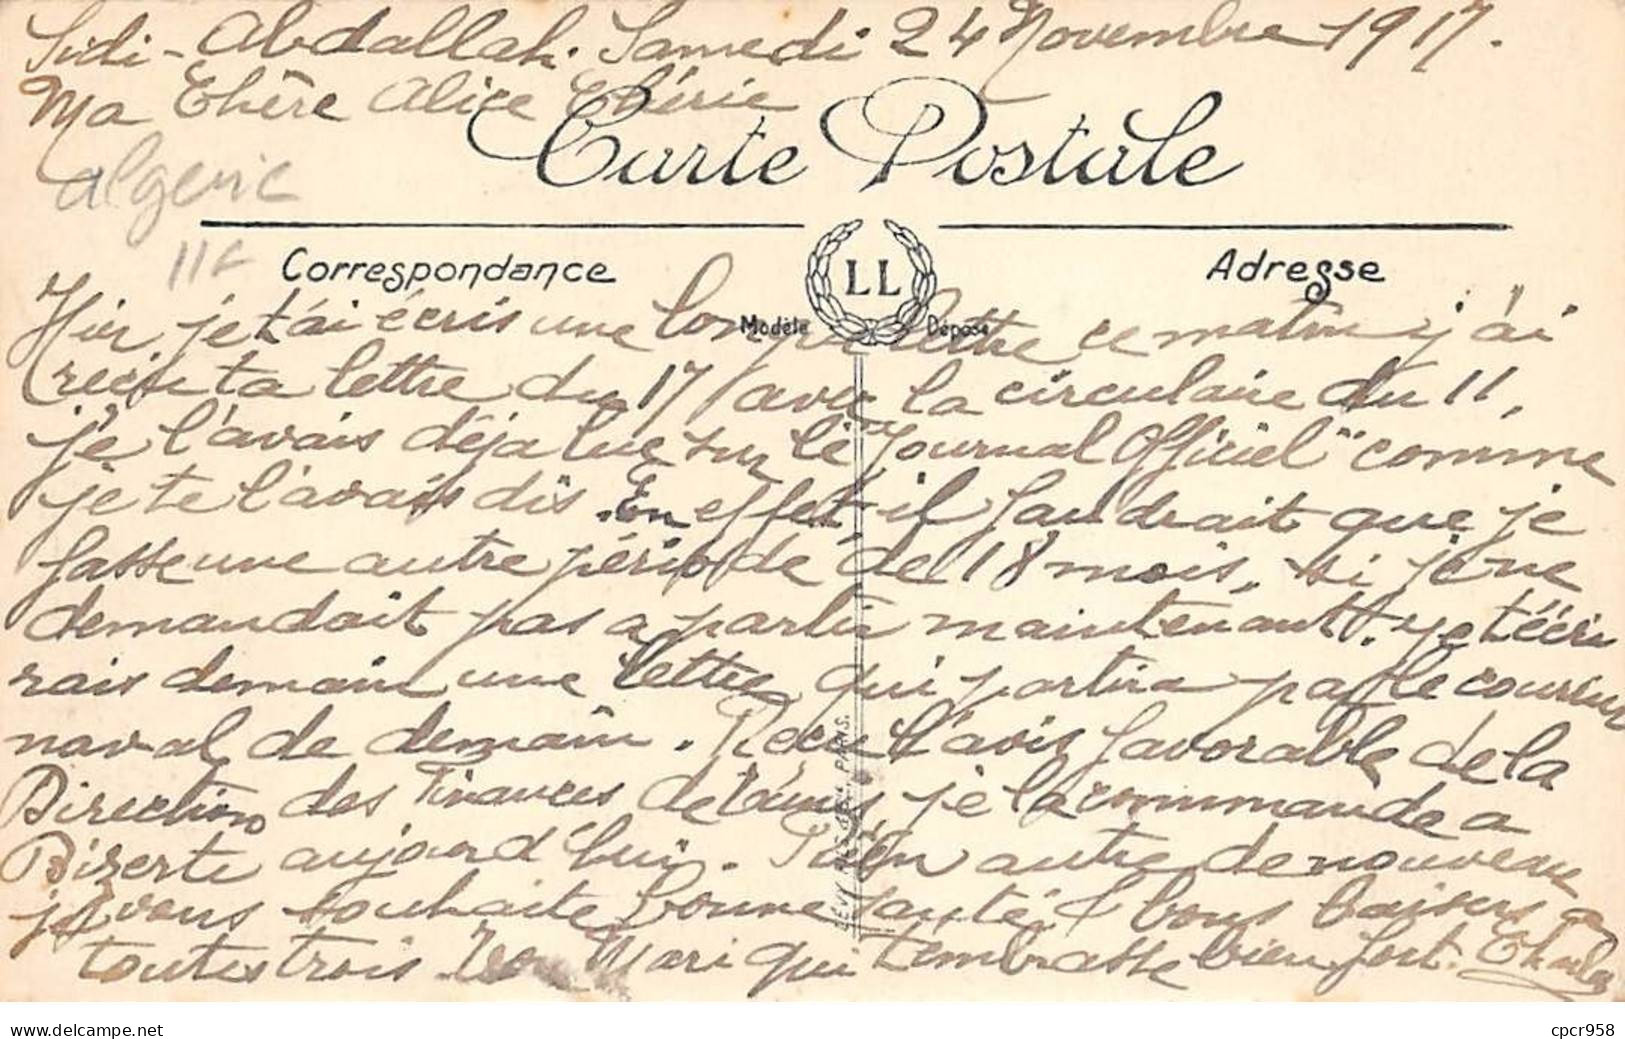 Sidi-Abdallah. Samedi 24 Novembre 1917.
Ma Chère Alice Chérie
Carte Postale
algerie
11c
Correspondance
LL
Adresse
Modèle Déposé
Hier je t'ai écris une longue lettre ce matin j'ai
reçu ta lettre du 17 avec la circulaire du 11,
je l'avais déja lue sur le "Journal Officiel" comme
je te l'avais dis. En effet il faudrait que je
fasse une autre période de 18 mois, si je ne
demandait pas a partir maintenant. je t'écri
rais demain une lettre qui partira par le courrier
naval de demain. Reçu l'avis favorable de la
Direction des Finances de Tunis, je la commande a
Bizerte aujourd'hui. Rien autre de nouveau
je vous souhaite bonne santé & bons baisers a
toutes trois Ton Mari qui t'embrasse bien fort. Charles
LEVY FILS & Cie PARIS.
cpcr958